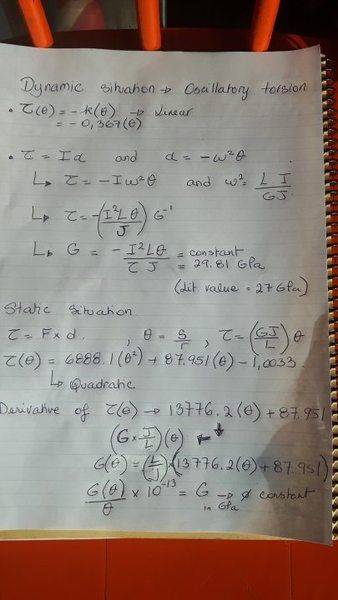 Dynamic situation → Oscillatory torsion
• τ(θ) = -k(θ) → Linear
= -0,367(θ)
• τ = Iα and α = -ω²θ
↳ τ = -Iω²θ and ω² = LI/GJ
↳ τ = -(I²Lθ/J) G⁻¹
↳ G = -I²Lθ/τJ = constant
= 29.81 GPa
(lit. value = 27 GPa)
Static Situation
τ = F×d , θ = S/r , τ = (GJ/L) θ
τ(θ) = 6888.1(θ²) + 87.951(θ) - 1,0033
↳ Quadratic
Derivative of τ(θ) → 13776.2(θ) + 87.951
(G × J/L)(θ) ←
G(θ) = (L/J) × (13776.2(θ) + 87.951)
G(θ)/θ × 10⁻¹³ = G → constant
in GPa